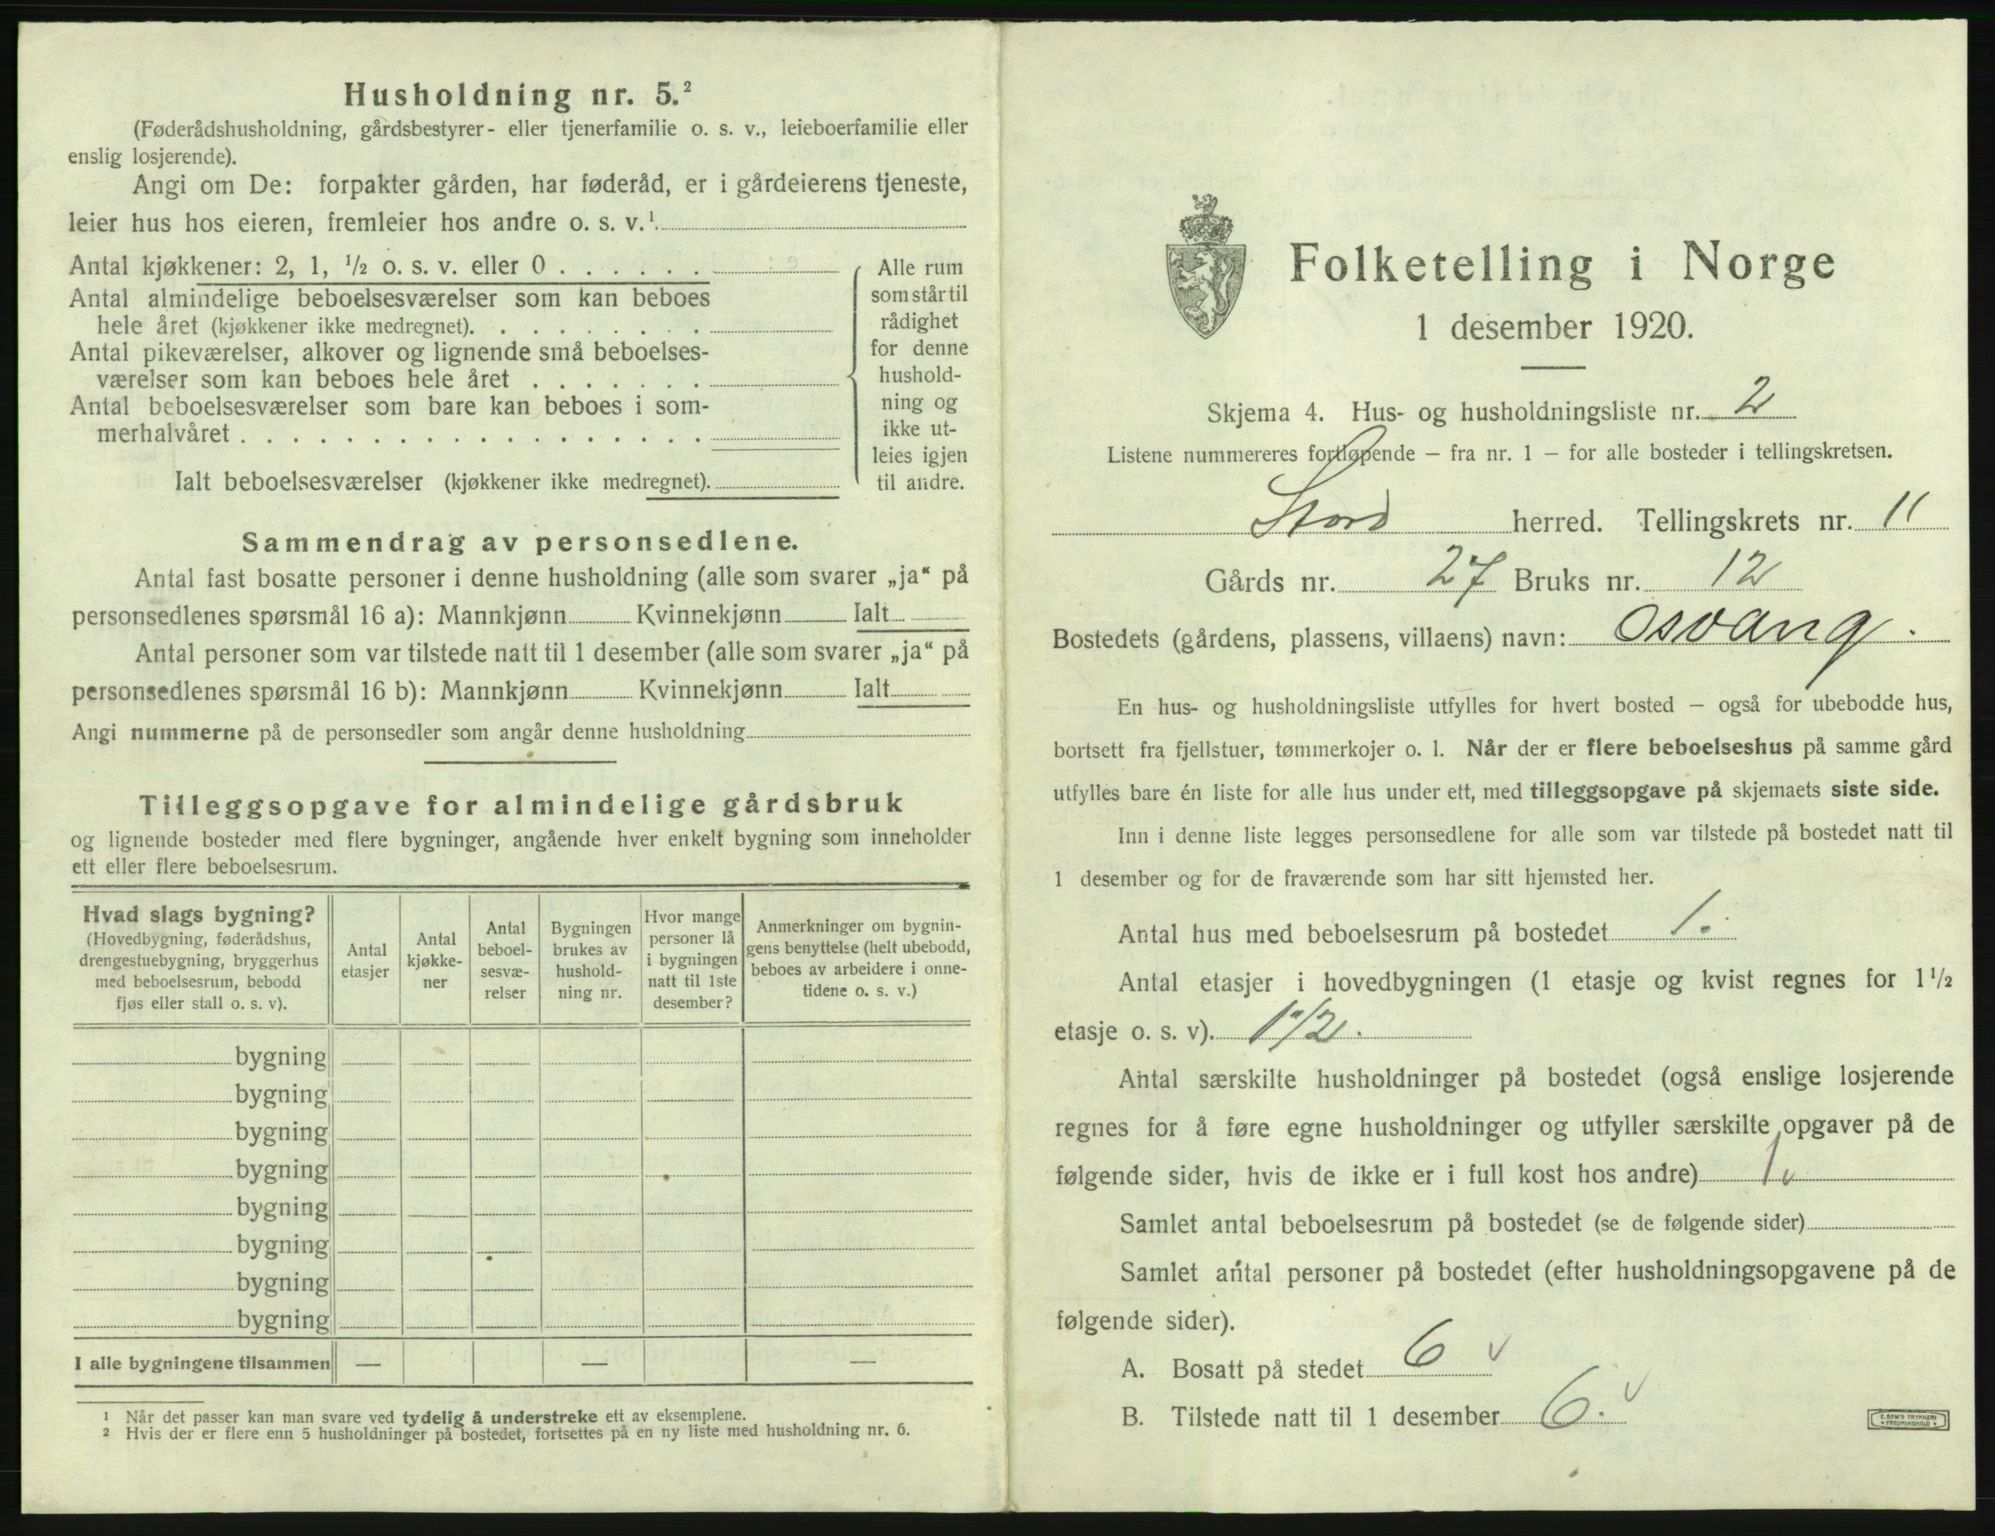 Husholdning nr. 5.²
(Føderådshusholdning, gårdsbestyrer- eller tjenerfamilie o. s. v., leieboerfamilie eller
enslig losjerende).
Angi om De: forpakter gården, har føderåd, er i gårdeierens tjeneste,
leier hus hos eieren, fremleier hos andre o. s. v.¹
Antal kjøkkener: 2, 1, ½ o. s. v. eller 0 . . . . . .
Antal almindelige beboelsesværelser som kan beboes
hele året (kjøkkener ikke medregnet). . . . . . . . .
Antal pikeværelser, alkover og lignende små beboelses-
værelser som kan beboes hele året . . . . . . .
Antal beboelsesværelser som bare kan beboes i som-
merhalvåret . . . . . . . . . . . . . . . . . .
Ialt beboelsesværelser (kjøkkener ikke medregnet).
Alle rum
som står til
rådighet
for denne
hushold-
ning og
ikke ut-
leies igjen
til andre.
Sammendrag av personsedlene.
Antal fast bosatte personer i denne husholdning (alle som svarer „ja“ på
personsedlenes spørsmål 16 a): Mannkjønn Kvinnekjønn Ialt
Antal personer som var tilstede natt til 1 desember (alle som svarer „ja“ på
personsedlenes spørsmål 16 b): Mannkjønn Kvinnekjønn Ialt
Angi nummerne på de personsedler som angår denne husholdning
Tilleggsopgave for almindelige gårdsbruk
og lignende bosteder med flere bygninger, angående hver enkelt bygning som inneholder
ett eller flere beboelsesrum.
Hvad slags bygning?
(Hovedbygning, føderådshus,
drengestuebygning, bryggerhus
med beboelsesrum, bebodd
fjøs eller stall o. s. v).
Antal
etasjer
Antal
kjøkke-
ner
Antal
beboel-
sesvæ-
relser
Bygningen
brukes av
hushold-
ning nr.
Hvor mange
personer lå
i bygningen
natt til 1ste
desember?
Anmerkninger om bygnin-
gens benyttelse (helt ubebodd,
beboes av arbeidere i onne-
tidene o. s. v.)
bygning
bygning
bygning
bygning
bygning
bygning
bygning
bygning
I alle bygningene tilsammen — — —
¹ Når det passer kan man svare ved tydelig å understreke ett av eksemplene.
² Hvis der er flere enn 5 husholdninger på bostedet, fortsettes på en ny liste med husholdning nr. 6.
Folketelling i Norge
1 desember 1920.
Skjema 4. Hus- og husholdningsliste nr. 2
Listene nummereres fortløpende – fra nr. 1 – for alle bosteder i tellingskretsen.
Stord herred. Tellingskrets nr. 11
Gårds nr. 27 Bruks nr. 12
Bostedets (gårdens, plassens, villaens) navn: Osvang.
En hus- og husholdningsliste utfylles for hvert bosted – også for ubebodde hus,
bortsett fra fjellstuer, tømmerkojer o. l. Når der er flere beboelseshus på samme gård
utfylles bare én liste for alle hus under ett, med tilleggsopgave på skjemaets siste side.
Inn i denne liste legges personsedlene for alle som var tilstede på bostedet natt til
1 desember og for de fraværende som har sitt hjemsted her.
Antal hus med beboelsesrum på bostedet 1.
Antal etasjer i hovedbygningen (1 etasje og kvist regnes for 1½
etasje o. s. v). 1 1/2.
Antal særskilte husholdninger på bostedet (også enslige losjerende
regnes for å føre egne husholdninger og utfyller særskilte opgaver på de
følgende sider, hvis de ikke er i full kost hos andre) 1 v
Samlet antal beboelsesrum på bostedet (se de følgende sider)
Samlet antal personer på bostedet (efter husholdningsopgavene på de
følgende sider).
A. Bosatt på stedet 6 v
B. Tilstede natt til 1 desember 6. v
E. SEM'S TRYKKERI
FREDRIKSHALD